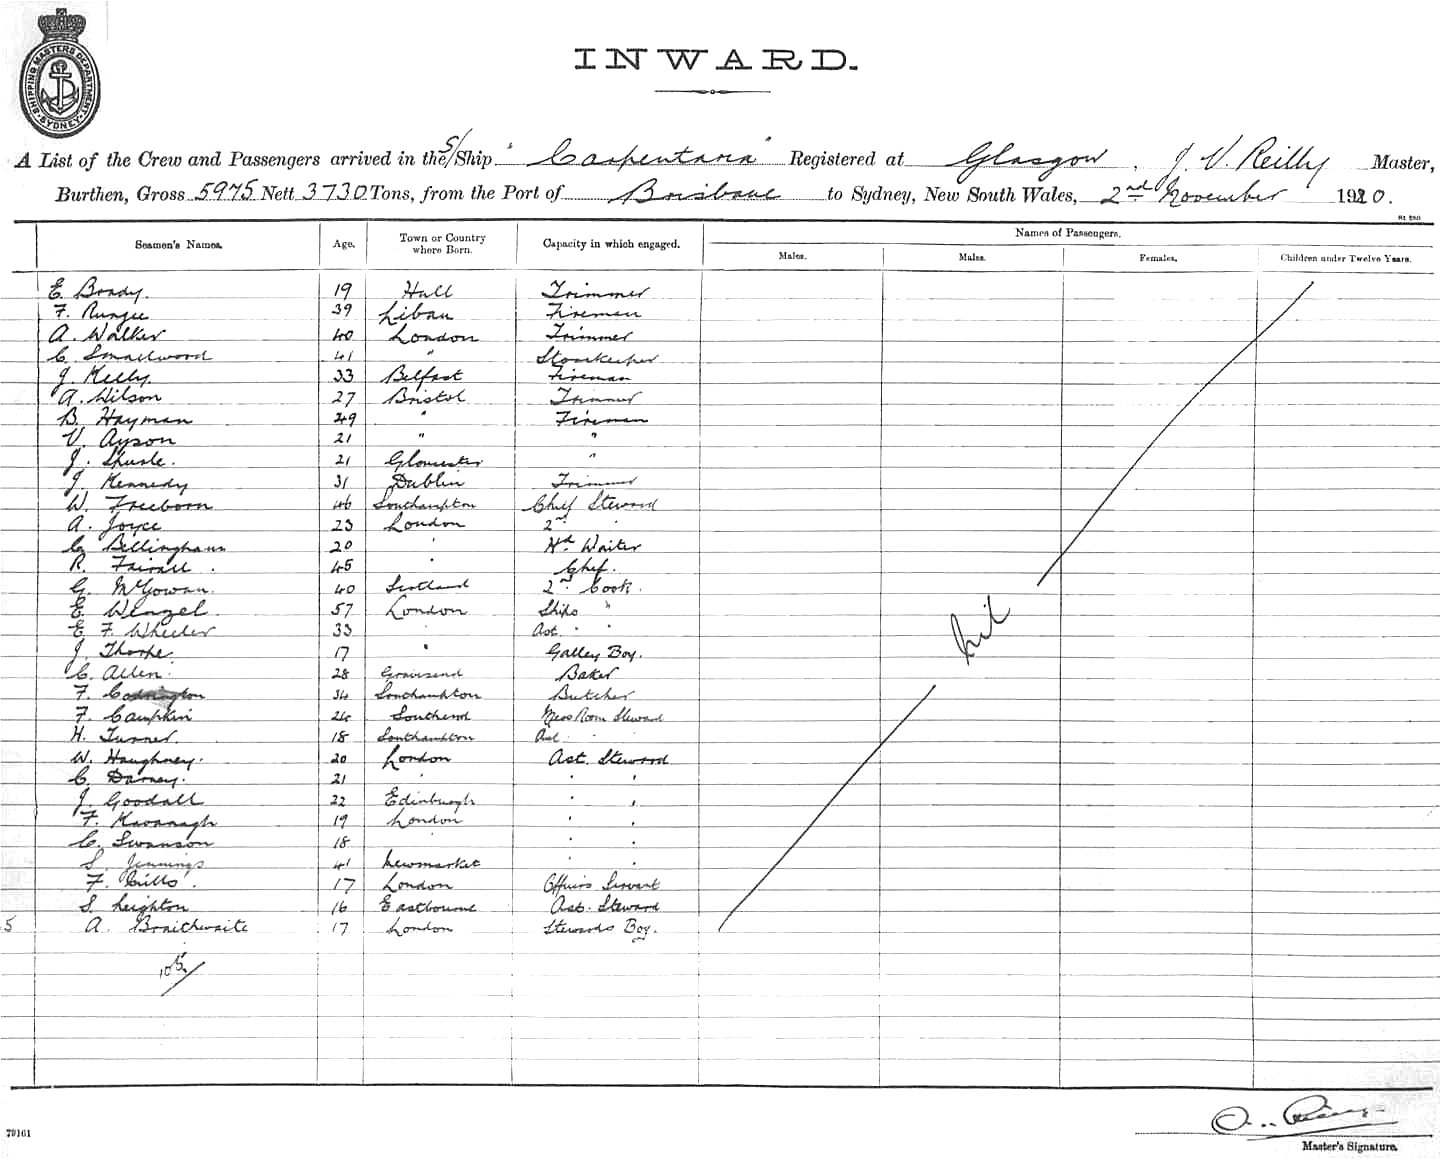 SHIPPING MASTERS DEPARTMENT SYDNEY
INWARD.
A List of the Crew and Passengers arrived in the S/Ship "Carpentaria" Registered at Glasgow, J. V. Reilly Master,
Burthen, Gross 5975 Nett 3730 Tons, from the Port of Brisbane to Sydney, New South Wales, 2nd November 1920.
Seamen's Names. Age. Town or Country where Born. Capacity in which engaged. Names of Passengers.
Males. Males. Females. Children under Twelve Years.
E. Brady. 19 Hull Trimmer
F. Rungee 39 Libau Fireman
A. Walker 40 London Trimmer
C. Smallwood 41 " Storekeeper
J. Kelly. 33 Belfast Fireman
A. Wilson 27 Bristol Trimmer
B. Hayman 49 " Fireman
V. Ayson 21 " "
J. 21 Gloucester "
J. Kennedy 31 Dublin Trimmer
W. Freeborn 46 Southampton Chief Steward
A. Joyce 23 London 2nd "
C. Billingham 20 " Hd Waiter
R. Fairall. 45 " Chef.
G. McGowan. 40 Scotland 2nd Cook.
E. Wenzel. 57 London Ships "
E. F. Wheeler 33 " Ast. " "
J. Thorpe. 17 " Galley Boy.
C. Allen. 28 Gravesend Baker
F. Codrington 34 Southampton Butcher
F. Campkin 24 Southend Mess Room Steward
H. Turner. 18 Southampton Ast. " "
W. Haughney. 20 London Ast. Steward
C. Darney. 21 " " "
J. Goodall 22 Edinburgh " "
F. Kavanagh 19 London " "
C. Swanson 18 " " "
S. Jennings 41 Newmarket " "
F. 17 London Officers Servant
S. Leighton 16 Eastbourne Ast. Steward
5 A. Braithwaite 17 London Stewards Boy.
Nil
105
79161
Master's Signature.